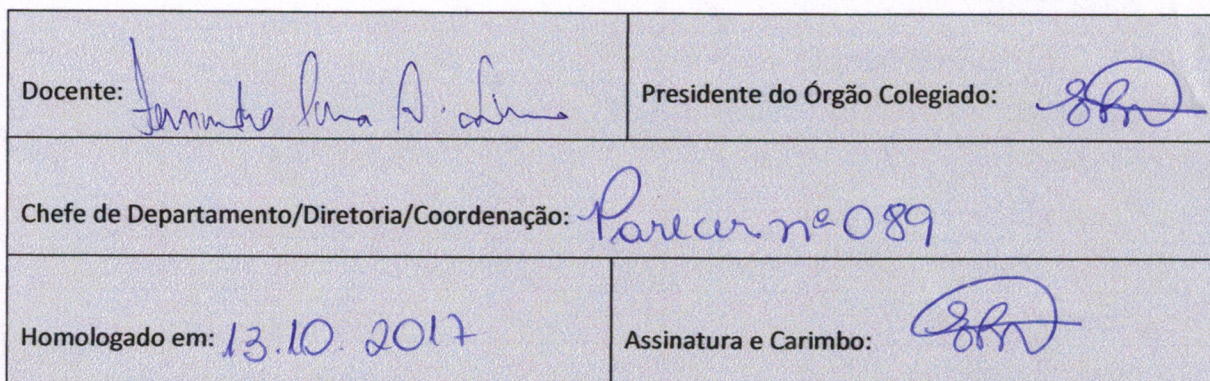 Docente: Fernando
Presidente do Órgão Colegiado:
Chefe de Departamento/Diretoria/Coordenação: Parecer nº 089
Homologado em: 13.10.2017
Assinatura e Carimbo: